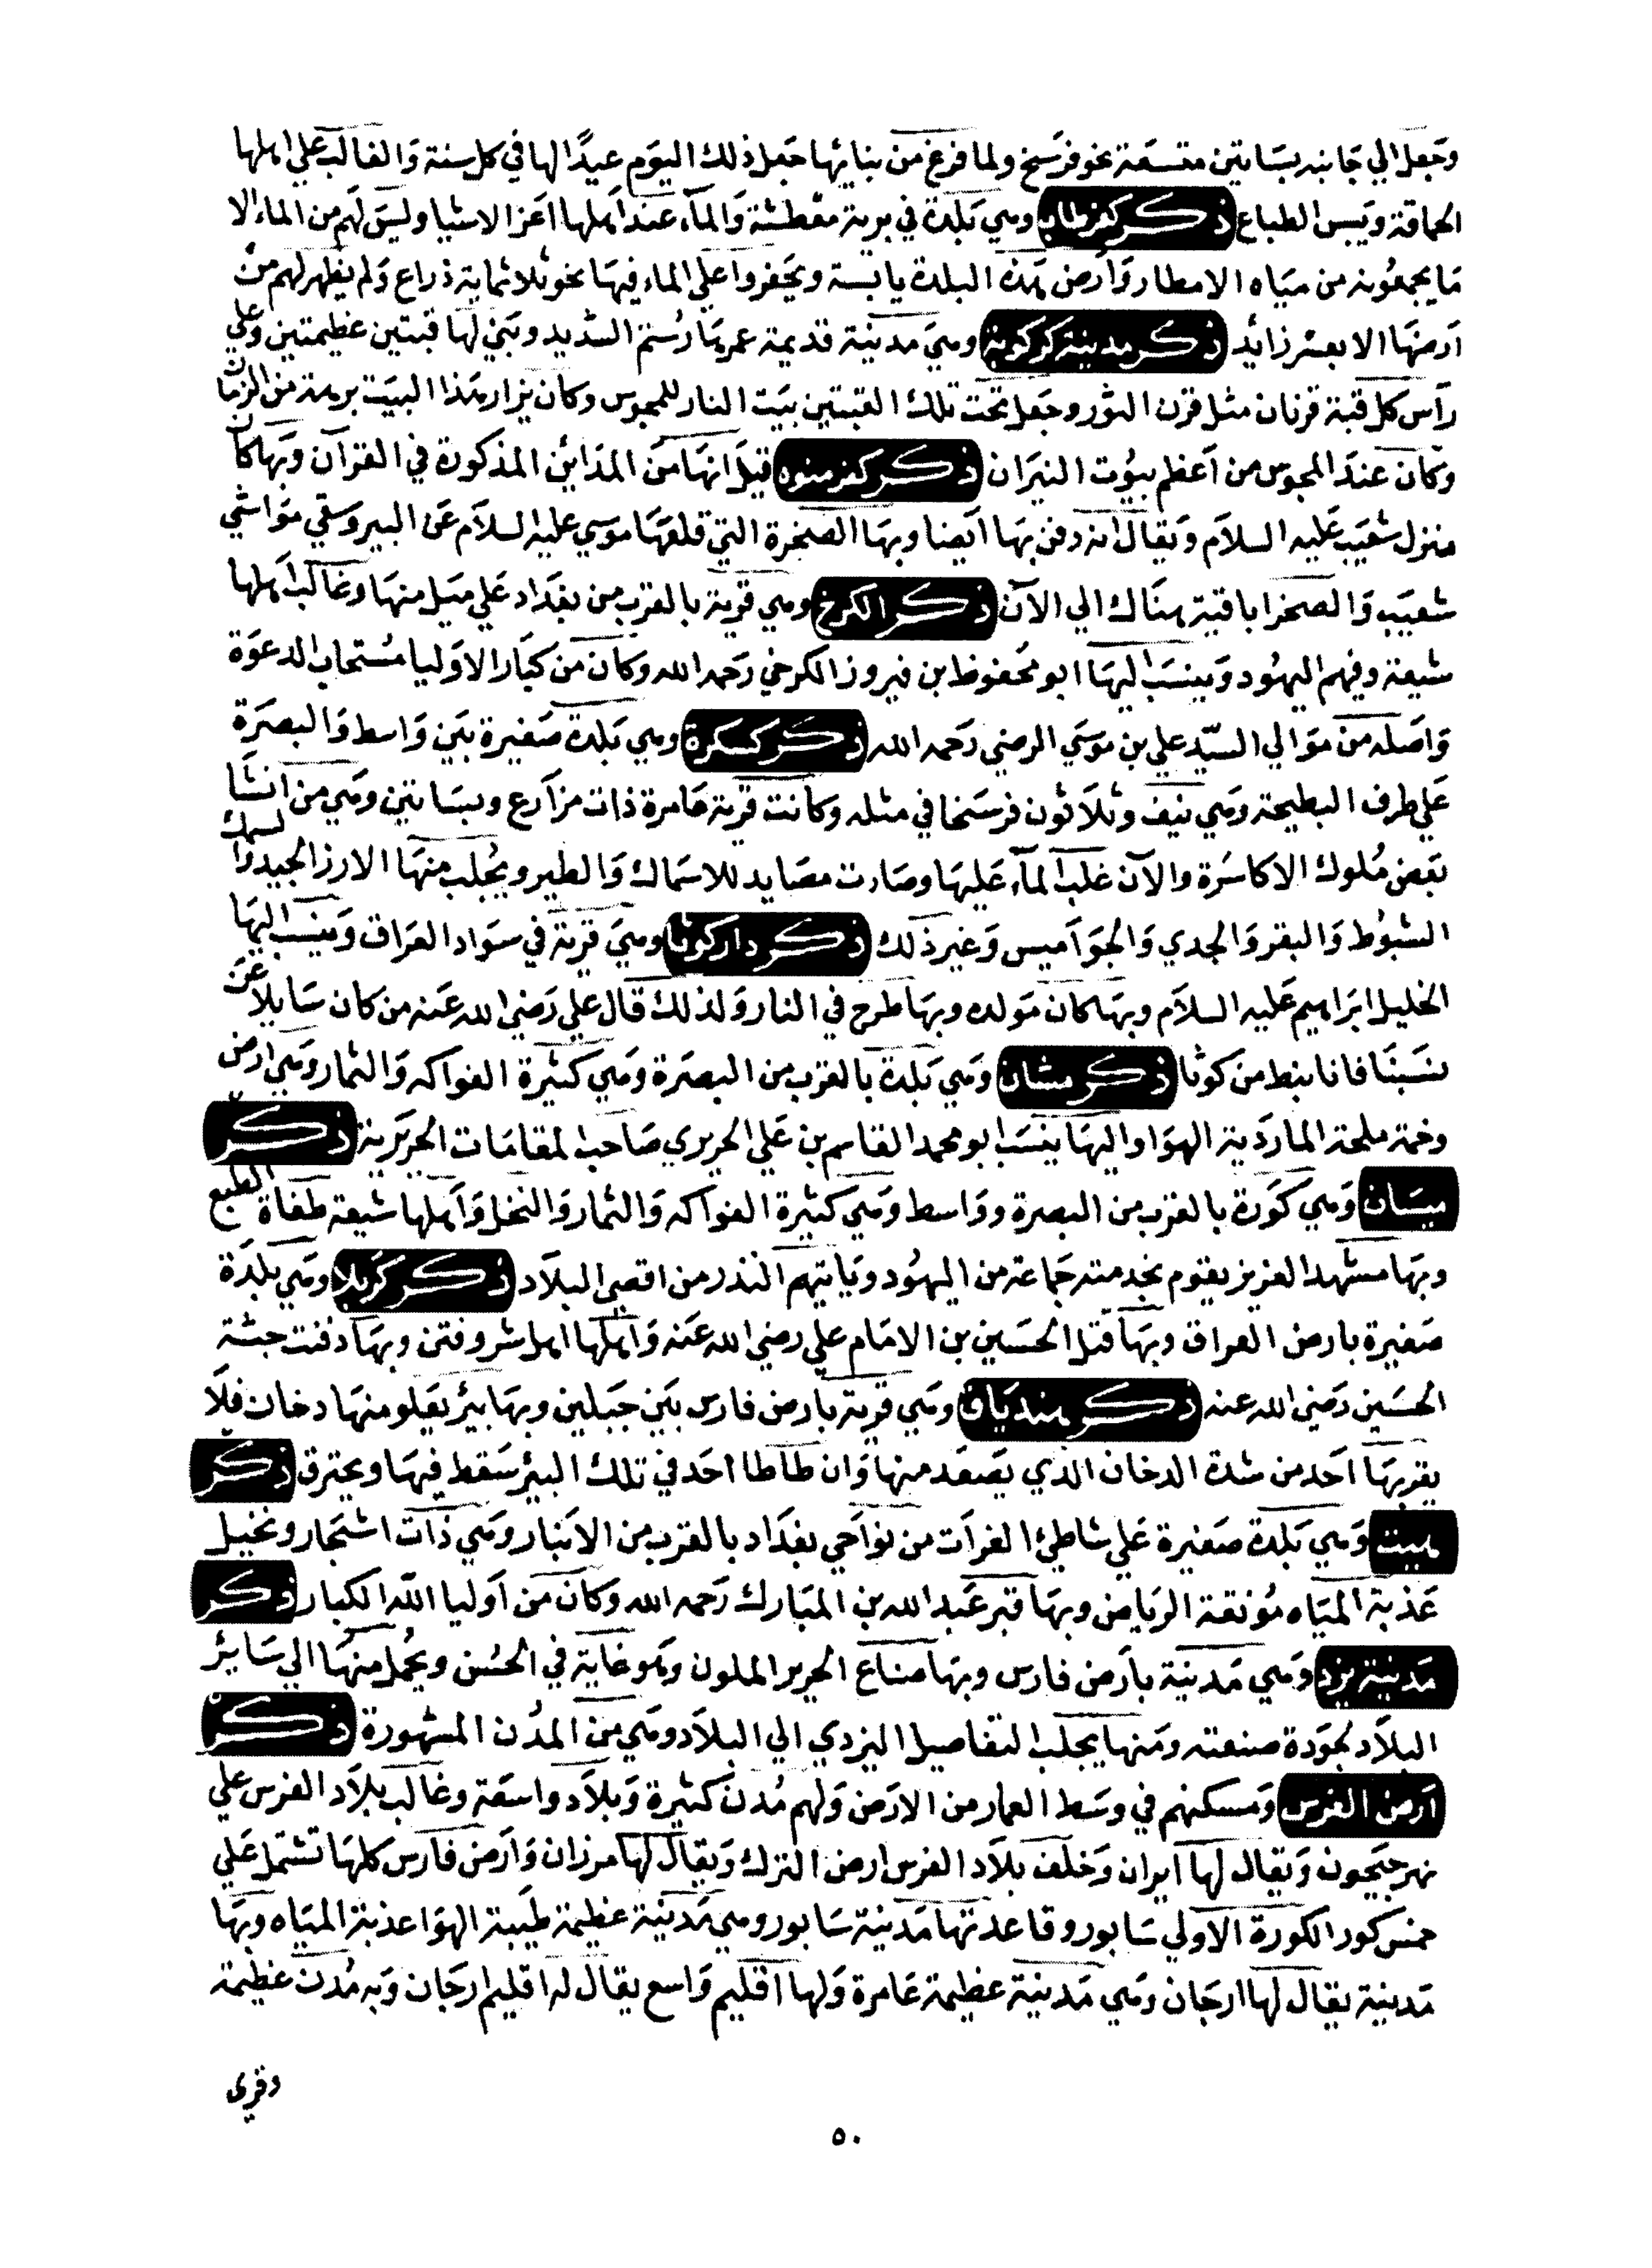 وجعل الي جانبه بساتين متسعة نحو فرسخ ولما فرغ من بنائها جعل ذلك اليوم عيدًا لها في كل سنة والغالب علي اهلها
الحماقة ويبس الطباع ذكر كفرطاب وهي بلدة في برية معطشة والمآء عند اهلها اعز الاشيا وليس لهم من الماء الا
ما يجمعونه من مياه الامطار وارض هذه البلدة يابسة ويحفروا علي الماء فيها نحو ثلاثماية ذراع ولم يظهر لهم من
ارضها الا بعسر زائد ذكر مدينة كركويه وهي مدينة قديمة عمرها رستم الشديد وبني لها قبتين عظيمتين وعلي
رأس كل قبة قرنان مثل قرن الثور وجعل تحت تلك القبتين بيت النار للمجوس وكان يزار هذا البيت برهة من الزمان
وكان عند المجوس من اعظم بيوت النيران ذكر كفرمنده قيل انها من المداين المذكورة في القرآن وبها كان
منزل شعيب عليه السلام ويقال انه دفن بها ايضا وبها الصخرة التي قلعها موسي عليه السلام عن البير وسقي مواشي
شعيب والصخرا باقية هناك الي الآن ذكر الكرخ وهي قرية بالقرب من بغداد علي ميل منها وغالب اهلها
شيعة وفيهم اليهود وينسب اليها ابو محفوظ بن فيروز الكرخي رحمه الله وكان من كبار الاوليا مستجاب الدعوة
واصله من موالي السيّد علي بن موسي الرضي رحمه الله ذكر كسكرة وهي بلدة صغيرة بين واسط والبصرة
علي طرف البطيحة وهي نيف وثلاثون فرسخا في مثله وكانت قرية عامرة ذات مزارع وبساتين وهي من انشا
بعض ملوك الاكاسرة والآن غلب المآء عليها وصارت مصايد للاسماك والطير ويجلب منها الارز الجيد والسمك
الشبوط والبقر والجدي والجواميس وغير ذلك ذكر دار كوثا وهي قرية في سواد العراق وينسب اليها
الخليل ابراهيم عليه السلام وبها كان مولده وبها طرح في النار ولذلك قال علي رضي الله عنه من كان سايلا عن
نسبنا فانا نبط من كوثا ذكر مشان وهي بلدة بالقرب من البصرة وهي كثيرة الفواكه والثمار وهي ارض
وخمة ملحة الما ردية الهوا واليها ينسب ابو محمد القاسم بن علي الحريري صاحب المقامات الحريرية ذكر
ميسان وهي كورة بالقرب من البصرة وواسط وهي كثيرة الفواكه والثمار والنخل واهلها شيعة طغاة الطبع
وبها مشهد العزيز يقوم بخدمته جماعة من اليهود وياتيهم النذر من اقصي البلاد ذكر كربلا وهي بلدة
صغيرة بارض العراق وبها قتل الحسين بن الامام علي رضي الله عنه واهلها اهل شر وفتن وبها دفنت جثة
الحسين رضي الله عنه ذكر هنديان وهي قرية بارض فارس بين جبلين وبها بير يعلو منها دخان فلا
يقربها احد من شدة الدخان الذي يصعد منها وان طاطا احد في تلك البئر سقط فيها ويحترق ذكر
هيت وهي بلدة صغيرة علي شاطئ الفرات من نواحي بغداد بالقرب من الانبار وهي ذات اشجار ونخيل
عذبة المياه مونقة الرياض وبها قبر عبد الله بن المبارك رحمه الله وكان من اوليا الله الكبار ذكر
مدينة يزد وهي مدينة بارض فارس وبها صناع الحرير الملون وهو غاية في الحسن ويحمل منها الي سائر
البلاد لجودة صنعته ومنها يجلب التفاصيل اليزدي الي البلاد وهي من المدن المشهورة ذكر
ارض الفرس ومسكنهم في وسط العمار من الارض ولهم مدن كثيرة وبلاد واسعة وغالب بلاد الفرس علي
نهر جيحون ويقال لها ايران وخلف بلاد الفرس ارض الترك ويقال لها مرزان وارض فارس كلها تشتمل علي
خمس كور الكورة الاولي سابور وقاعدتها مدينة سابور وهي مدينة عظيمة طيبة الهوا عذبة المياه وبها
مدينة يقال لها ارجان وهي مدينة عظيمة عامرة ولها اقليم واسع يقال له اقليم ارجان وبه مدن عظيمة
وقري
٥٠